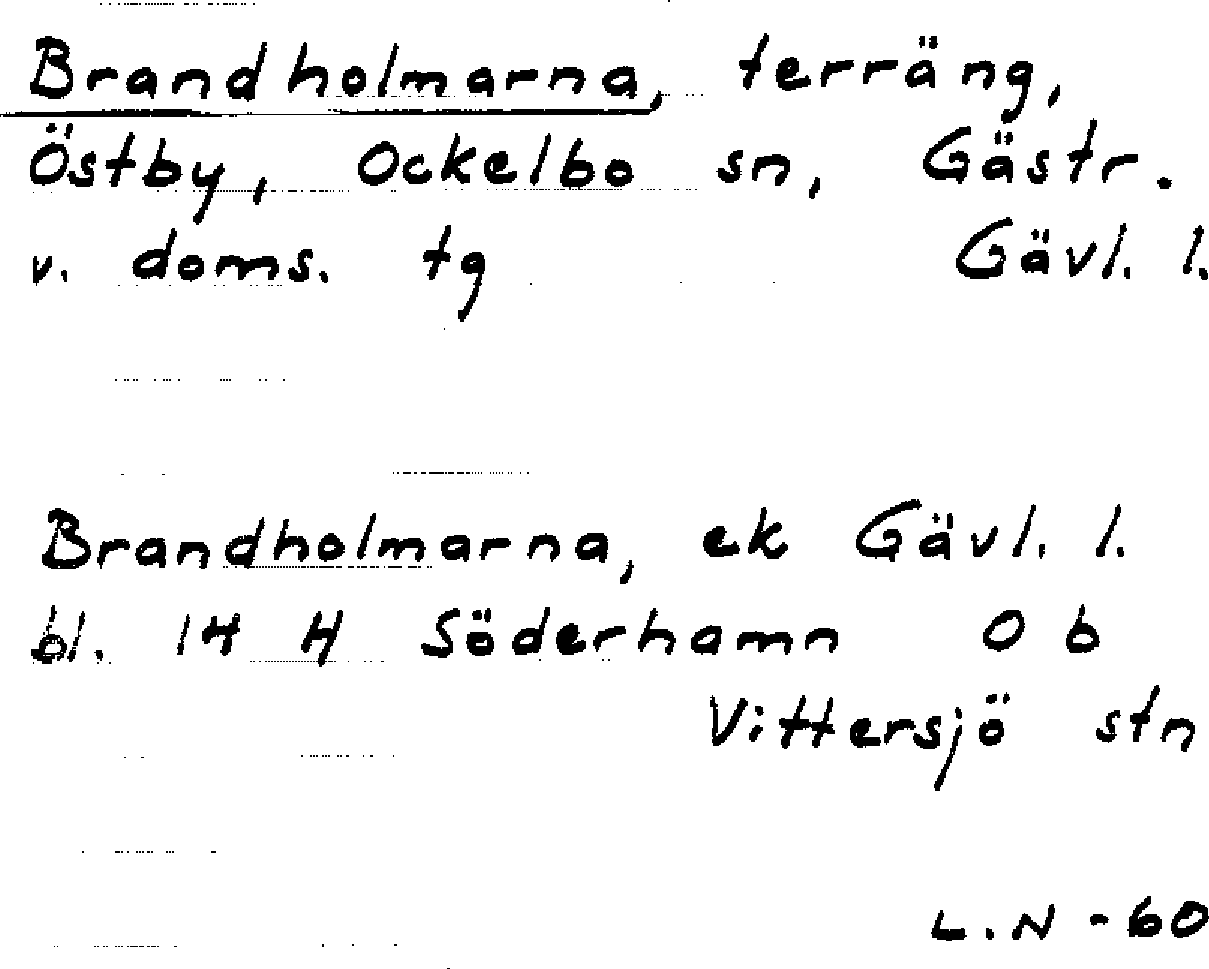 Brandholmarna, terräng,
Östby, Ockelbo sn, Gästr.
v. doms. tg Gävl. l.
Brandholmarna, ek Gävl. l.
bl. 14 H Söderhamn 0 b
Vittersjö stn
L.N - 60